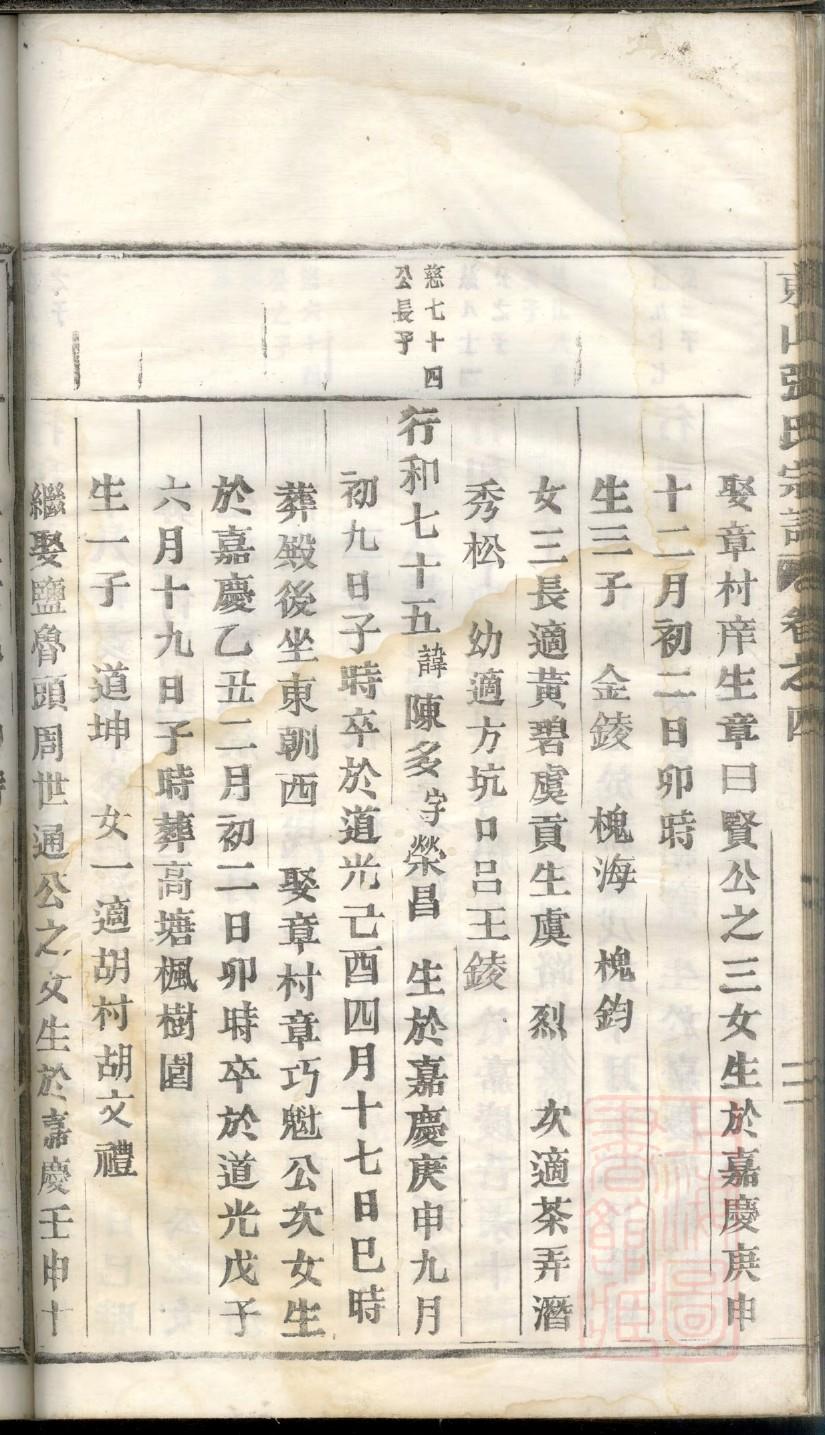 東山張氏宗譜 卷之四
娶章村庠生章日賢公之三女生於嘉慶庚申
十二月初二日卯時
生三子 金錂 槐海 槐鈞
女三長適黃碧虞貢生虞 烈 次適茶弄潛
秀松 幼適方坑口呂王錂
慈七十四
公長子
行和七十五諱陳多字榮昌 生於嘉慶庚申九月
初九日子時卒於道光己酉四月十七日巳時
葬殿後坐東朝西 娶章村章巧魁公次女生
於嘉慶乙丑二月初二日卯時卒於道光戊子
六月十九日子時葬高塘楓樹園
生一子 道坤 女一適胡村胡文禮
繼娶鹽魯頭周世通公之女生於嘉慶壬申十